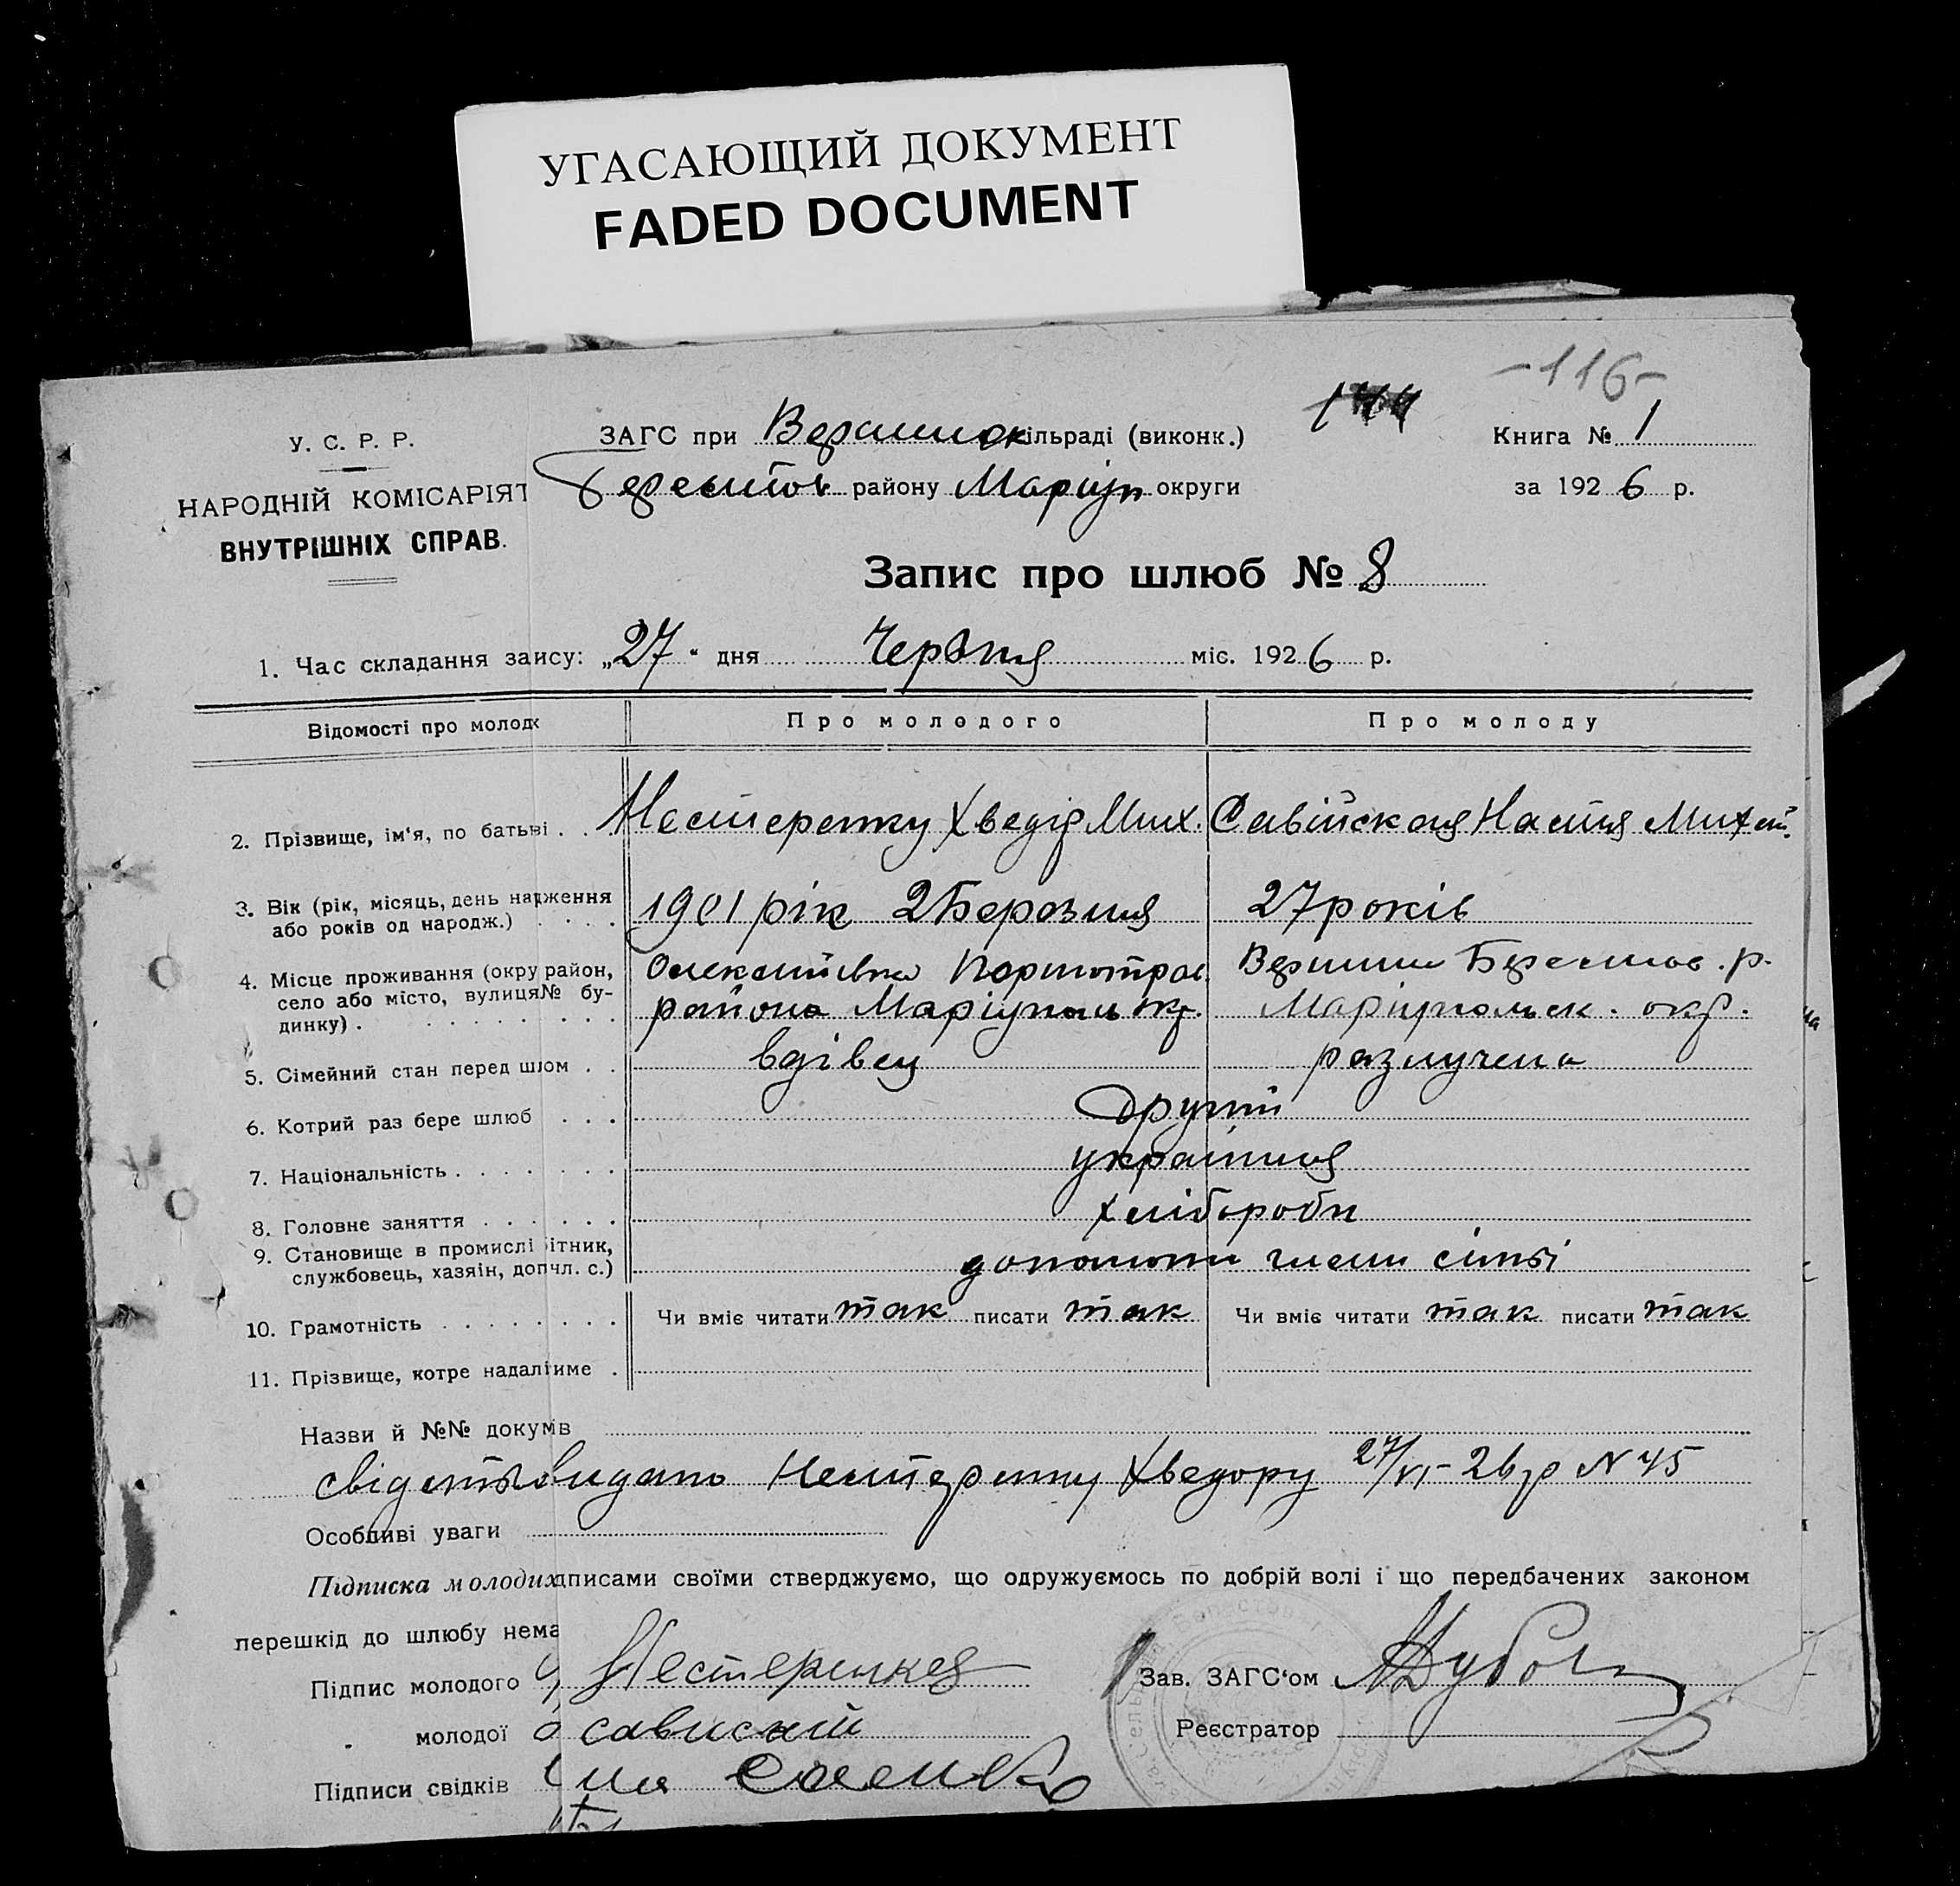 УГАСАЮЩИЙ ДОКУМЕНТ
FADED DOCUMENT
-116-
144
У. С. Р. Р.
НАРОДНІЙ КОМІСАРІЯТ
ВНУТРІШНІХ СПРАВ.
ЗАГС при Вершинск ільраді (виконк.)
Берестов району Маріуп округи
Книга № 1
за 1926 р.
Запис про шлюб № 8
1. Час складання заису: „27" дня Червня міс. 1926 р.
Відомості про молод
Про молодого
Про молоду
2. Прізвище, ім'я, по батьві . . Нестеренку Хведір Мих. Савійская Настя Михай.
3. Вік (рік, місяць, день нарження
або років од народж.) . . . . 1901 рік 2 Березня 27 років
4. Місце проживання (окру район,
село або місто, вулиця№ бу-
динку) . . . . . . . . .
Олексіївка
района Маріуполь окр.
Вершини Берестов. р.
Маріупольск. окр.
5. Сімейний стан перед шлом . . вдівец разлучена
6. Котрий раз бере шлюб . . . Другий
7. Національність . . . . . . . україння
8. Головне заняття . . . . . . хлібороби
9. Становище в промислі ітник,
службовець, хазяїн, допчл. с.) допомогти члени сімьі
10. Грамотність . . . . . . . . Чи вміє читати так писати так Чи вміє читати так писати так
11. Прізвище, котре надалііме .
Назви й №№ докумів
свідетьвидано Нестеренку Хведору 27/VI-26 р N 45
Особливі уваги
Підписка молодих дписами своїми стверджуємо, що одружуємось по добрій волі і що передбачених законом
перешкід до шлюбу нема
Підпис молодого Нестеренкея
" молодої савискій
Підписи свідків
Зав. ЗАГС'ом
Реєстратор